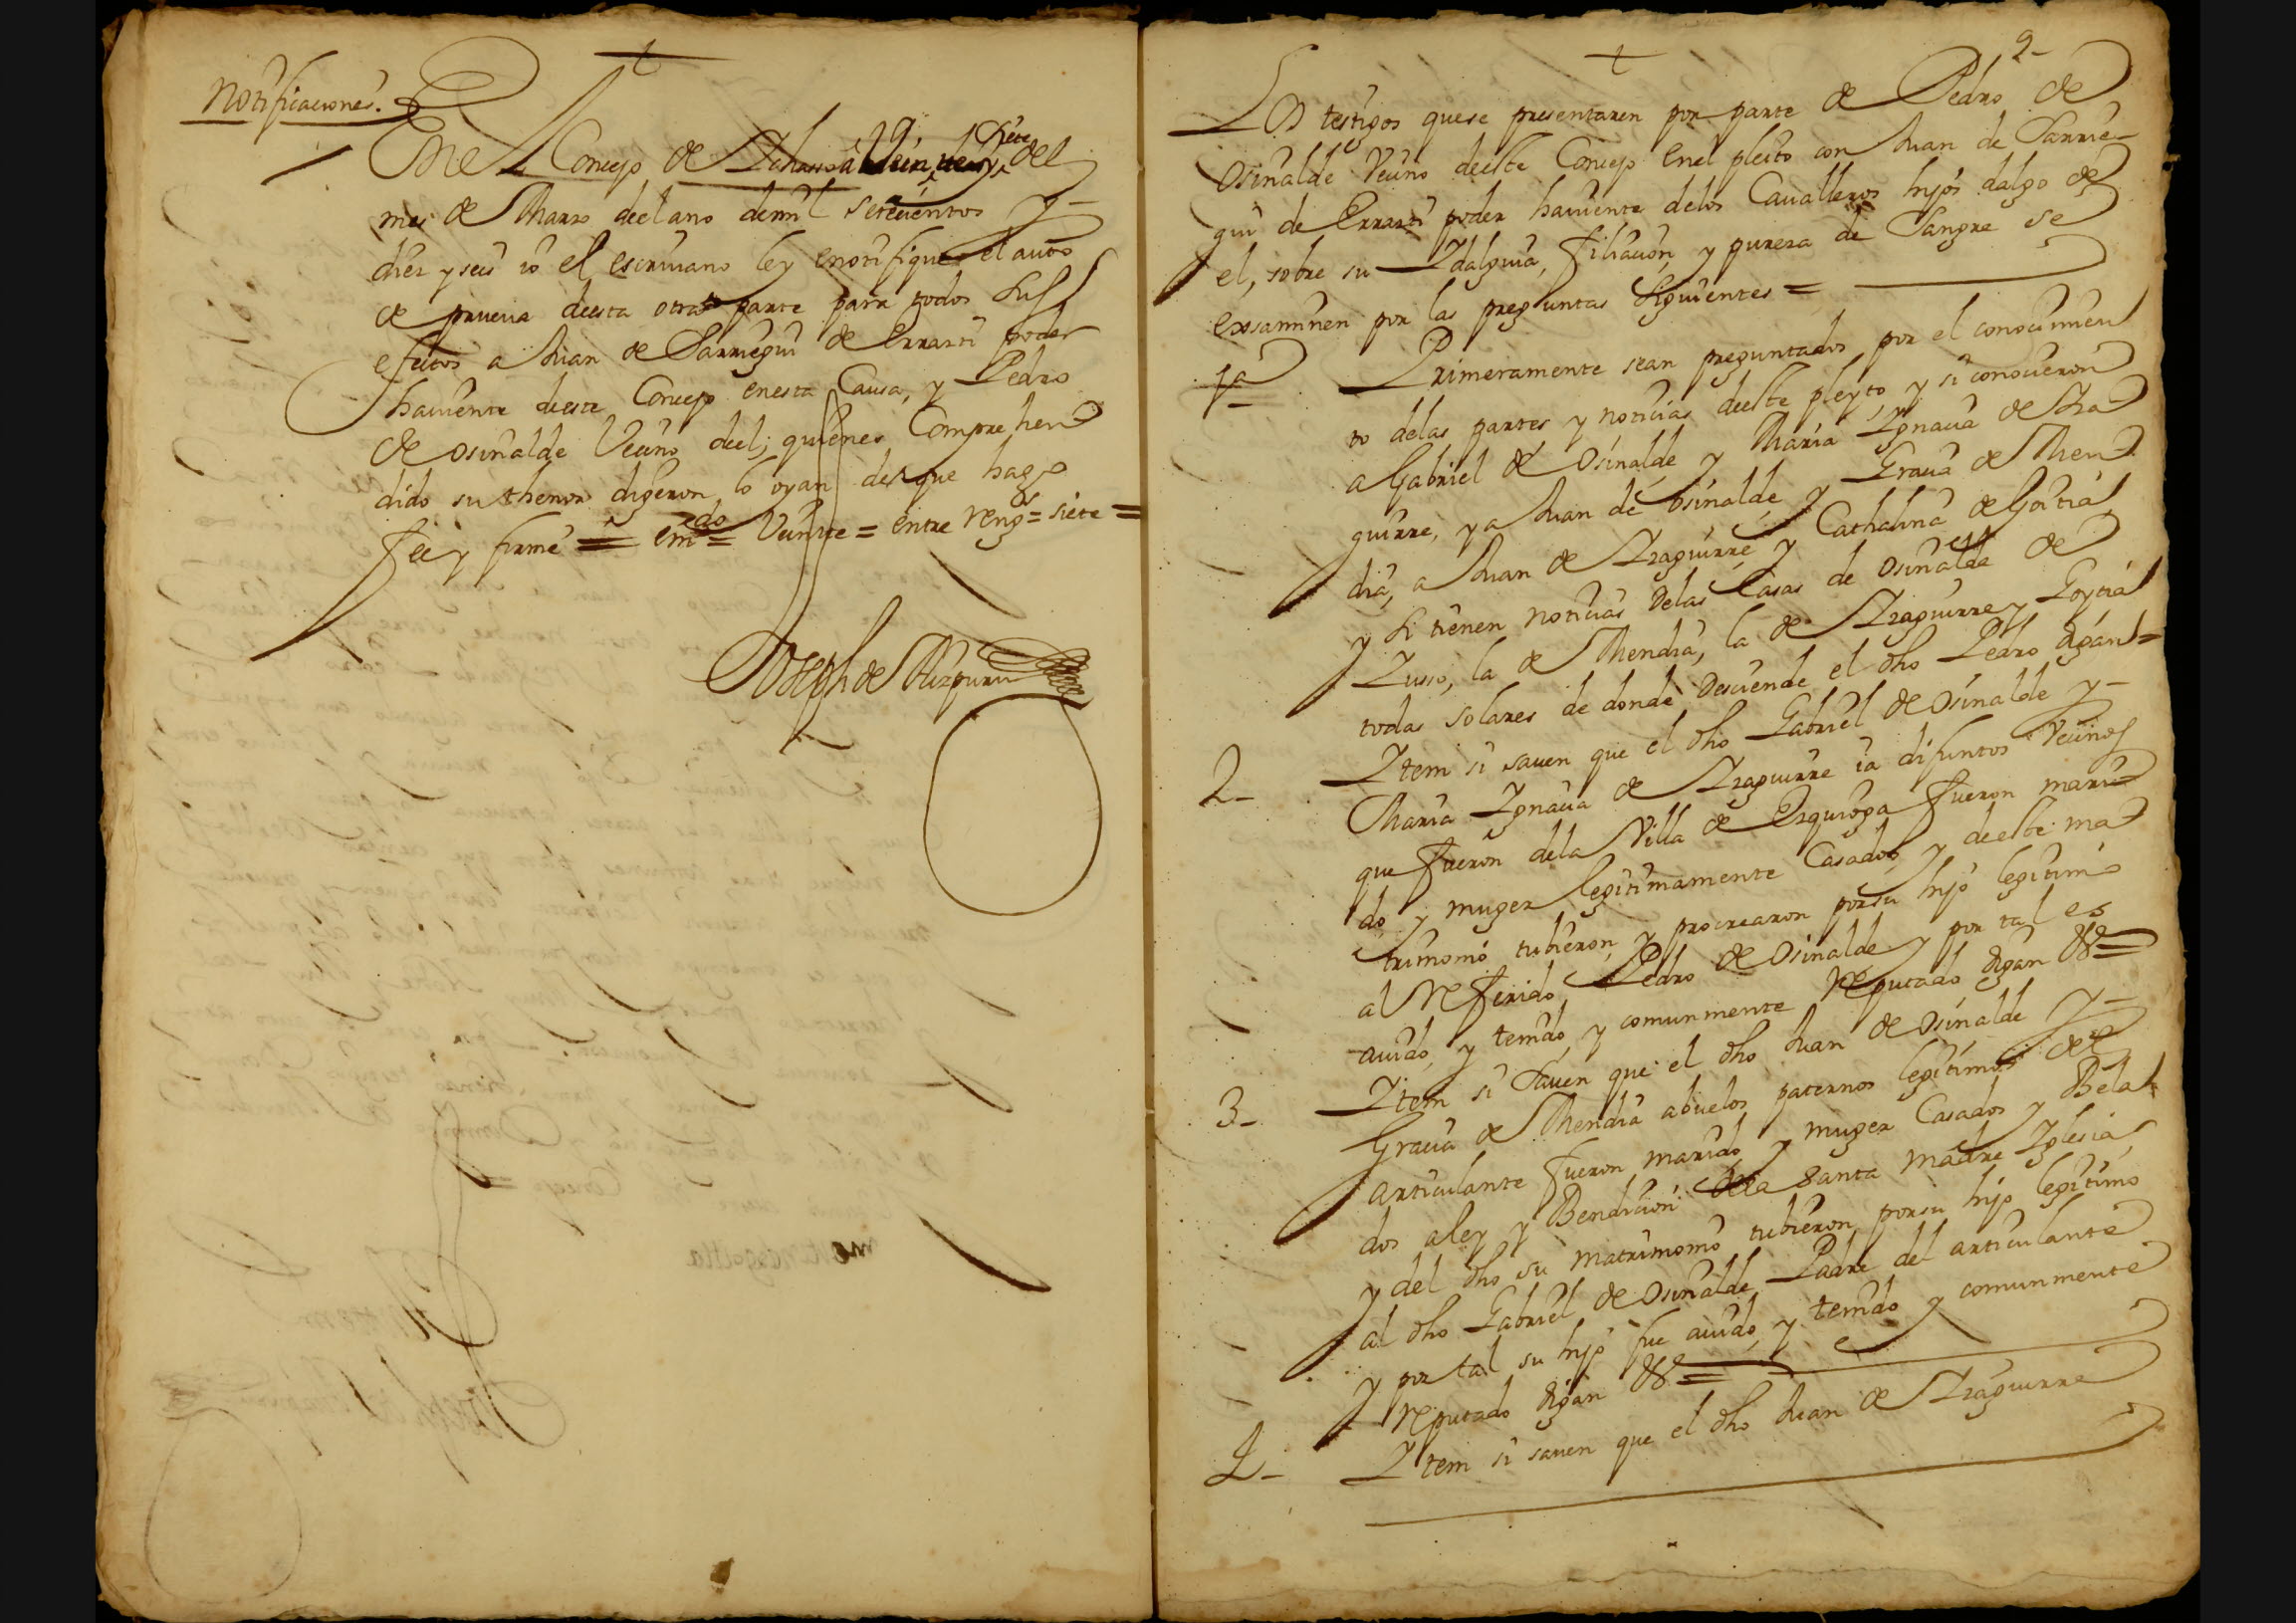 Notificaciones.
En el Concejo de Ichasso a Veinte y siete del
mes de Marzo deel ano de mil setecientos y
diez y seis io el escriuano ley enotifique el auto
de prueua deesta otra parte para todos sus
efeitos a Juan de Sarriegui de Errarti poder
hauiente deeste Concejo enesta Causa, y Pedro
de Osinalde Vecino deel; quienes Comprehen
dido su thenor digeron lo oyan des que hago
fee y firmé = em.do = Veinte = entre reng.s = siete =
Joseph de Aizpuru
2
Los testigos quese presentaren por parte de Pedro de
Osinalde Vecino deeste Concejo enel pleito con Juan de Sarrie-
gui de Errarti poder hauiente delos Caualleros hijos dalgo de
el, sobre su Idalguia, filiacion, y pureza de Sangre se
exsaminen por las preguntas siguientes =
1a Primeramente sean preguntados por el conocimien
to delas partes y noticias deeste pleyto y si conocieron
a Gabriel de Osinalde y Maria Ignacia de Aza
guirre, y a Juan de Osinalde, y Gracia de Men
dia, a Juan de Azaguirre y Cathalina de Goitia,
y si tienen noticias delas Casas de Osinalde de
Iusso, la de Mendia, la de Azaguirre y Goytia
todas solares de donde desciende el dho Pedro digan =
2- Item si sauen que el dho Gabriel de Osinalde y-
Maria Ignacia de Azaguirre ia difuntos Vecinos
que fueron dela Villa de Ezquioga fueron mari
do y muger legitimamente Casados, y deeste ma
trimonio tubieron, y procrearon porsu hijo legitimo
al Referido Pedro de Osinalde y por tal es
auido, y tenido, y comunmente Reputado digan &=
3- Item si sauen que el dho Juan de Osinalde y-
Gracia de Mendia abuelos paternos legitimos del
articulante fueron marido, y muger Casados y Bela
dos a ley y Bendicion dela Santa Madre Iglesia,
y del dho su matrimonio tubieron porsu hijo legitimo
al dho Gabriel de Osinalde Padre del articulante
y por tal su hijo fue auido, y tenido y comunmente
Reputado digan &=
4- Item si sauen que el dho Juan de Azaguirre